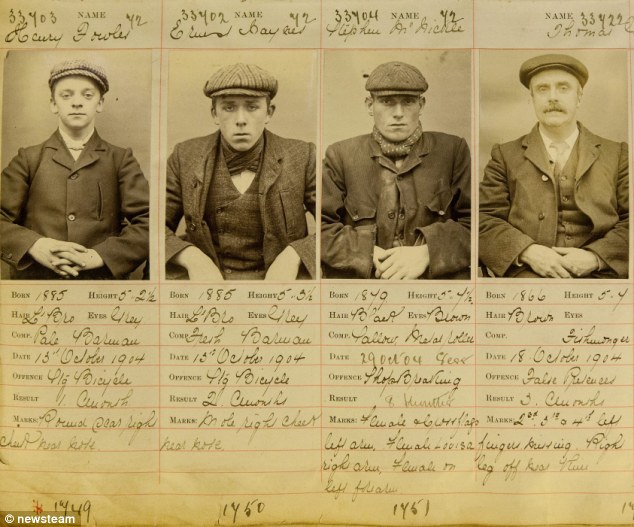 33703 NAME 42 33702 NAME 42 33704 NAME 42 33722 NAME
Henry Fowles Ernest Haynes Stephen McNickle Thomas
BORN 1885 HEIGHT 5-2½ BORN 1885 HEIGHT 5-3½ BORN 1879 HEIGHT 5-7½ BORN 1866 HEIGHT 5-4
HAIR Lt Bro EYES Grey HAIR Lt Bro EYES Grey HAIR EYES Brown HAIR Brown EYES
COMP. Pale Barman COMP. Fresh Barman COMP. Sallow COMP. Fishmonger
DATE 15 October 1904 DATE 15 October 1904 DATE 29 Oct 04 DATE 18 October 1904
OFFENCE Bicycle OFFENCE Bicycle OFFENCE Shop Breaking OFFENCE False Pretences
RESULT 1 Month RESULT 2 Months RESULT Months RESULT 3 Months
MARKS: Round scar right MARKS: Mole right cheek MARKS: Female MARKS: 2nd 3rd & 4th left
cheek near nose near nose left arm fingers missing
right arm Female on leg off near
left forearm
1749 1750 1751
© newsteam